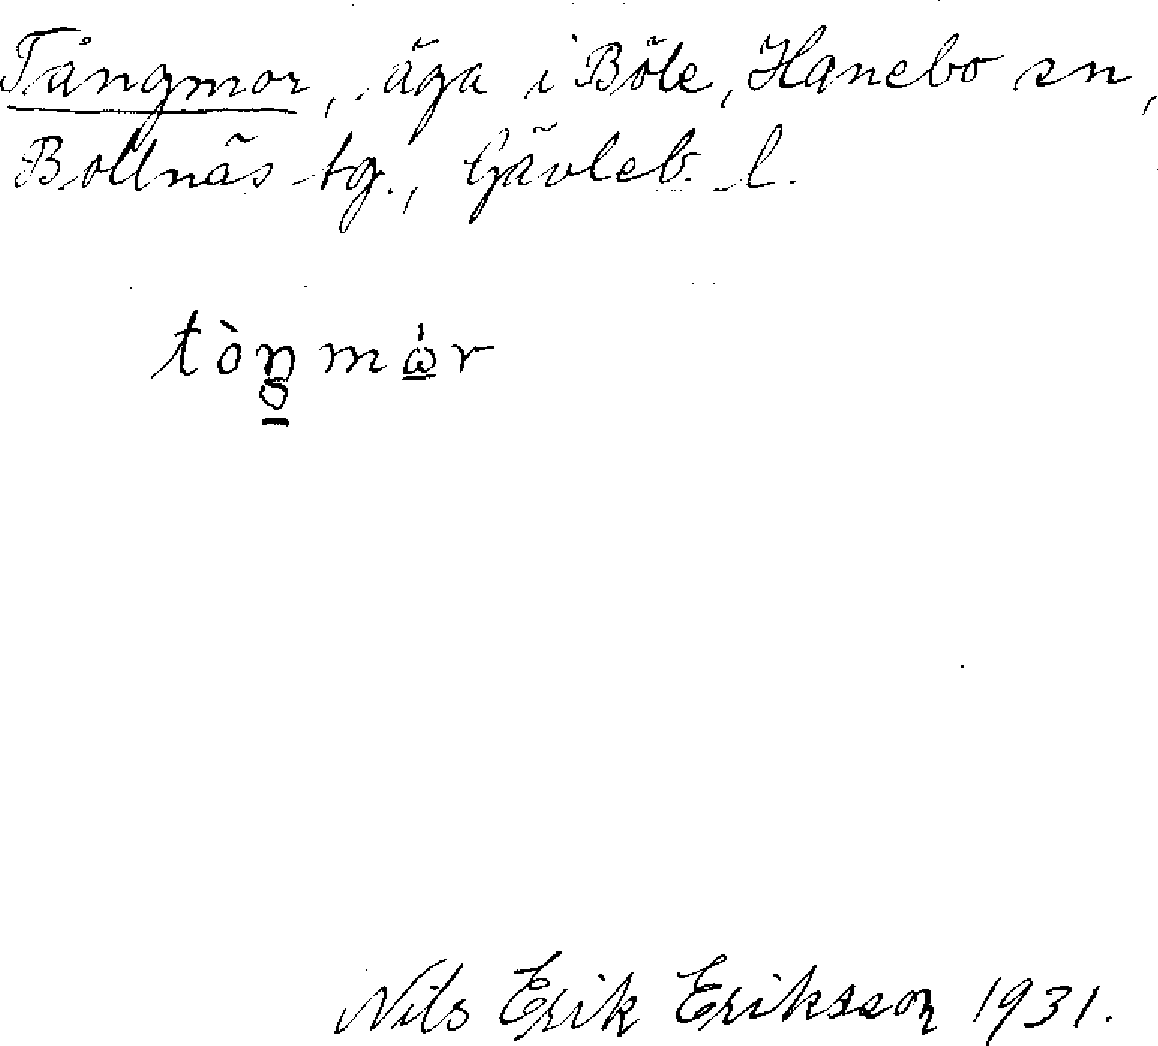 Tångmor, äga i Böle, Hanebo sn,
Bollnäs tg., Gävleb. l.
tòŋmω̲̍r
Nils Erik Eriksson 1931.